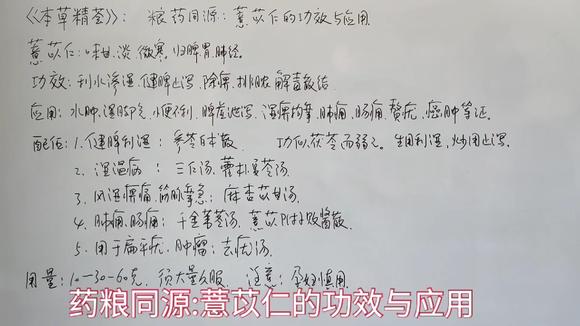 《本草精荟》： 粮药同源：薏苡仁的功效与应用
薏苡仁：味甘、淡，微寒，归脾胃肺经。
功效：利水渗湿，健脾止泻，除痹，排脓，解毒散结
应用：水肿，湿脚气，小便不利，脾虚泄泻，湿痹拘挛，肺痈，肠痈，赘疣，癌肿等证。
配伍：1. 健脾利湿：参苓白术散 功似茯苓而弱之。生用利湿，炒用止泻。
2. 湿温病：三仁汤，藿朴夏苓汤。
3. 风湿痹痛，筋脉挛急：麻杏苡甘汤
4. 肺痈，肠痈：千金苇茎汤，薏苡附子败酱散。
5. 用于扁平疣，肿瘤：去疣汤。
用量：10—30—60克，须大量久服。 注意：孕妇慎用
药粮同源:薏苡仁的功效与应用